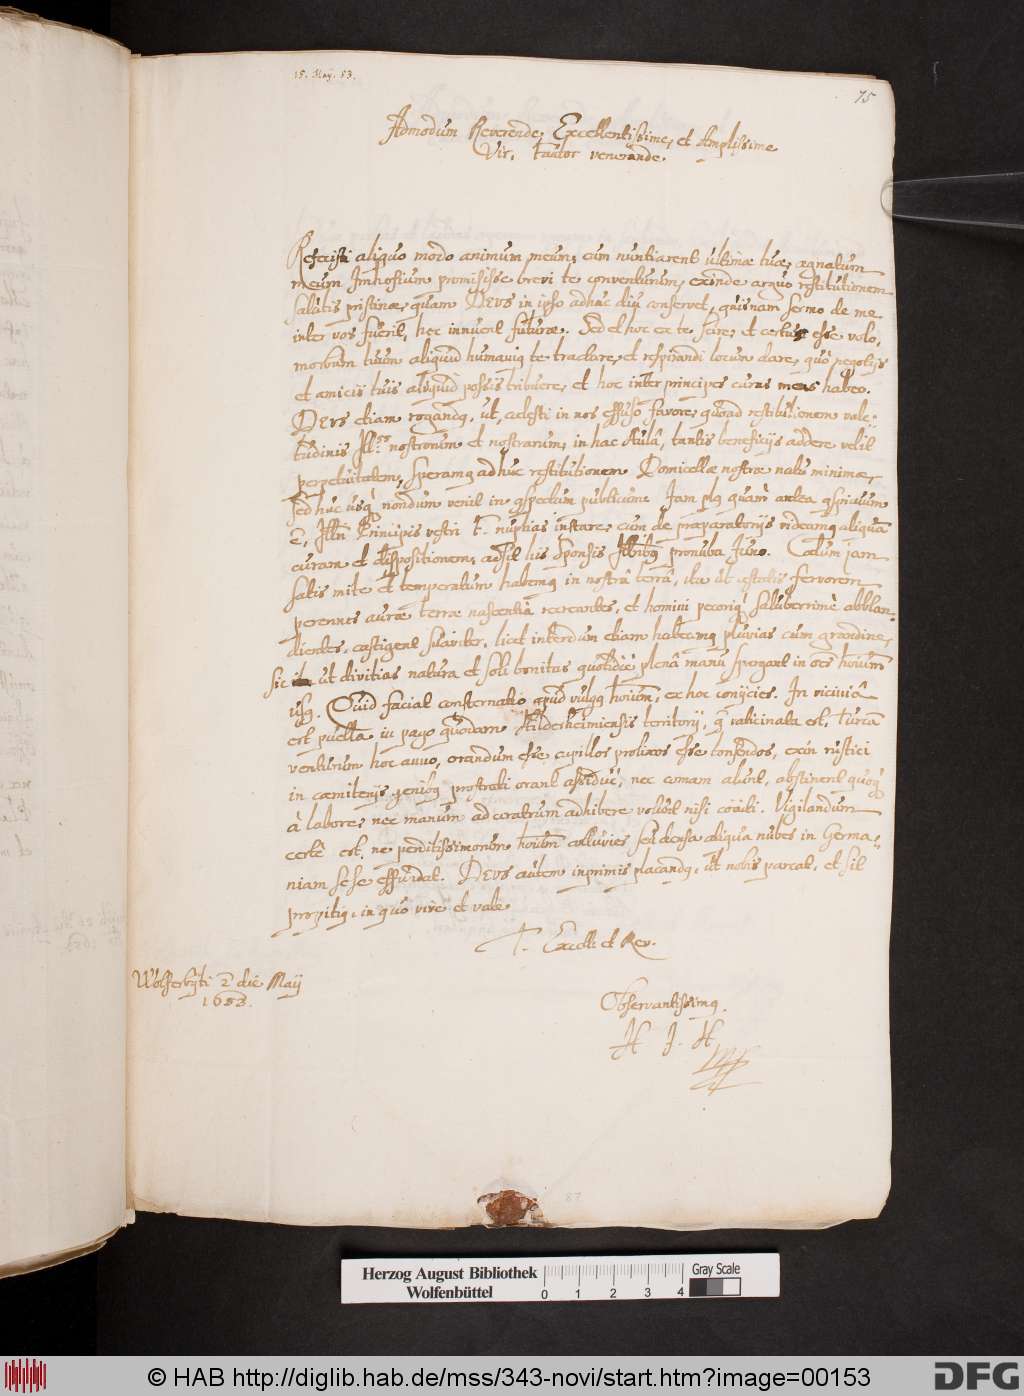 15. Maÿ. 53.
75
Admodum Reverende, Excellentissime, et Amplissime
Vir, Fautor venerande.
Refecisti aliquo modo animum meum, cum nuntiarent ultimæ tuæ, agnatum
meum Imhofium promisisse brevi te conventurum, exinde arguo restitutionem
salutis pristinæ, quam DEUS in ipso adhuc diu conservet, quisnam sermo de me
inter vos fuerit, hec innuent futuræ. Sed el hoc ex te scire, et certus esse volo,
morbum tuum aliquid humanius te tractare, et respirandi locum dare, quò negotijs
et amicis tuis aliquid possis tribuere, et hoc inter principes curas meas habeo.
DEUS etiam rogandus, ut, cælesti in nos effuso favore, quoad restitutionem vale-
tudinis Ill. nostrorum et nostrarum, in hac Aulâ, tantis beneficijs addere velit
perpetuitatem, speramus adhuc restitutionem Domicellæ nostræ natu minimæ,
sed huc usq nondum venit in conspectum publicum. Jam plus quam antea
Principis vestri nuptias instare, cum de præparatorijs videamus aliquam
curam et dispositionem, adsit his Sponsis pronuba Juno. Cælum jam
satis mite et temperatum habemus in nostrâ terrâ, ita ut æstatis fervorem
perennes auræ terræ nascentia recreantes, et homini pecoriq saluberrimè abblan-
dientes, castigent suaviter, licet interdum etiam habeamus pluvias cum grandine,
sic ut divitias natura et soli bonitas quotidiè plenâ manu spargat in
usus. Quid faciat consternatio apud vulgus hoium, ex hoc conijcies. In viciniâ
est puella in pago quodam Hildesheimensis territorij, q vaticinata est, Turcam
venturum hoc anno, orandum esse, capillos prolixos esse tondendos, exin rustici
in cæmiterijs genibus prostrati orant assiduè, nec comam alunt, abstinent quoq
à labore, nec manum ad aratrum adhibere volunt nisi coacti. Vigilandum
certè est, ne perditissimorum hoium colluvies seu densa aliqua nubes in Germa-
niam sese effundat. DEUS autem inprimis placandus, ut nobis parcat, et sit
propitius, in quo vive et vale.
T. Excell. et Rev.
Wolferbÿti 2 die Maij
1653.
Observantissimus
H J. H
mp
87
Herzog August Bibliothek
Wolfenbüttel
0 1 2 3 4
Gray Scale
© HAB http://diglib.hab.de/mss/343-novi/start.htm?image=00153
DFG